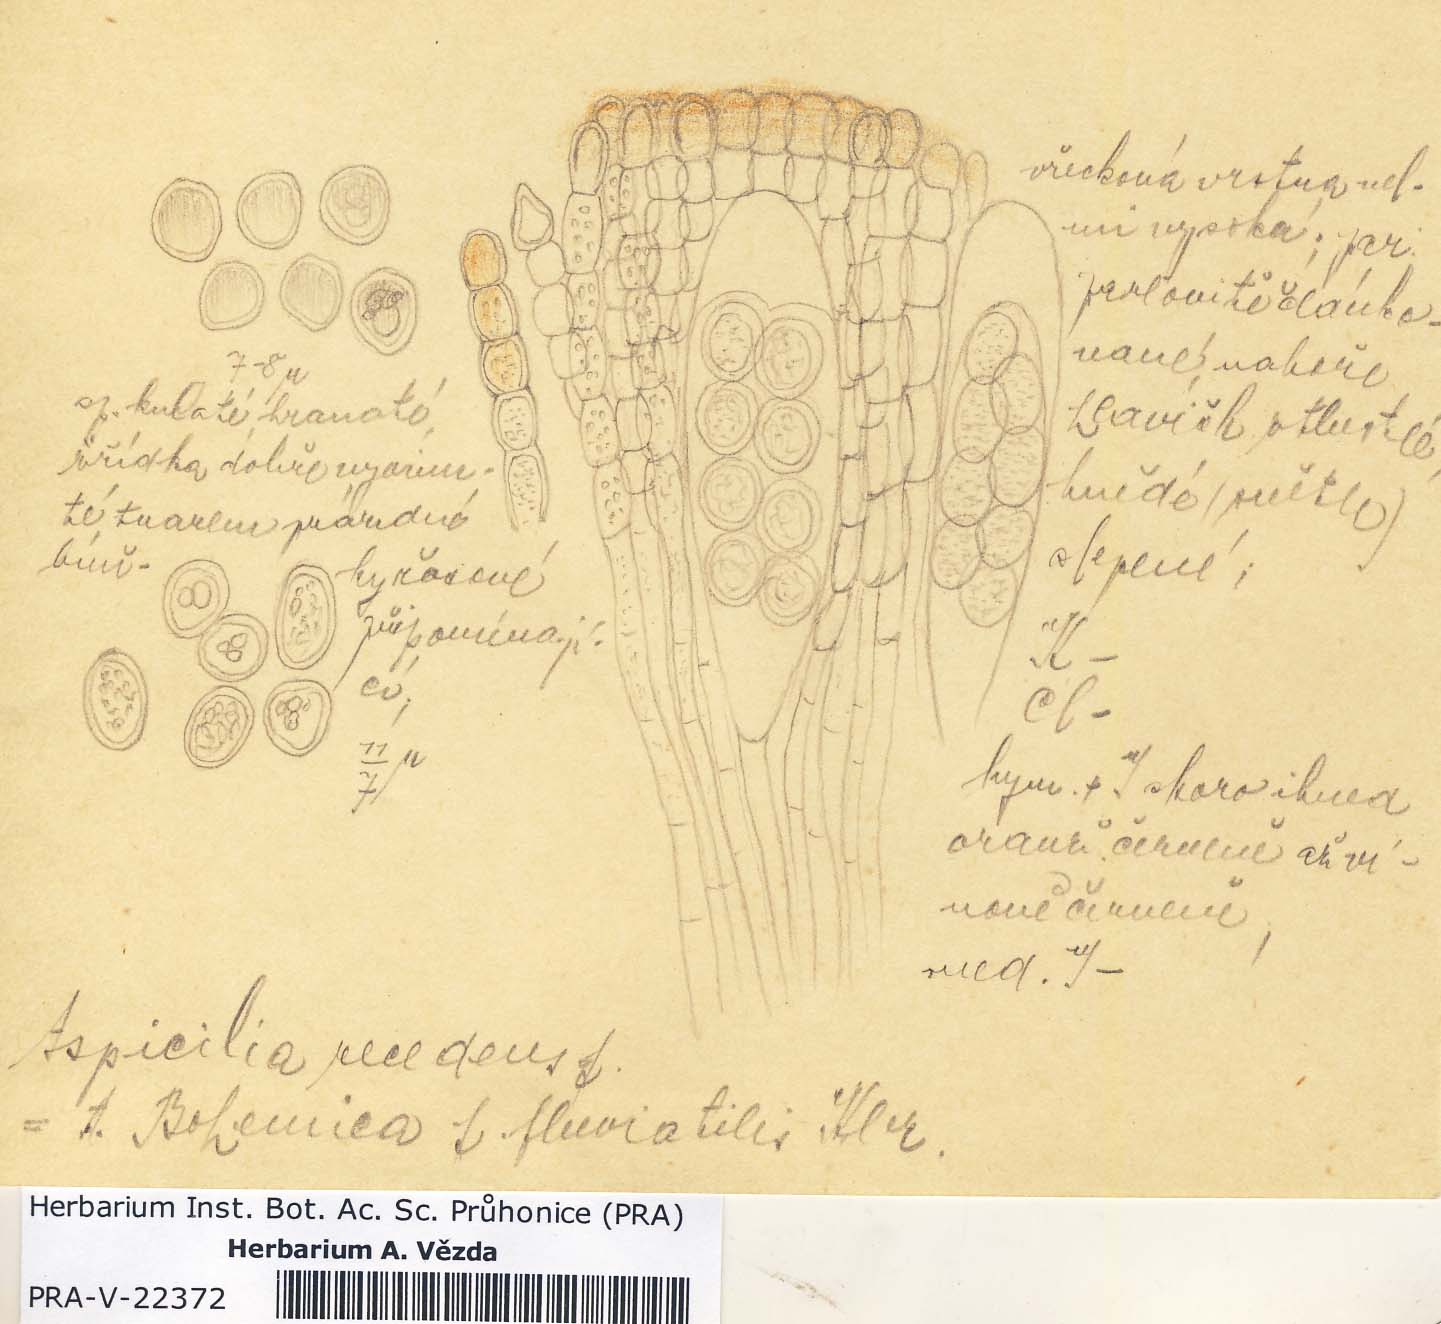 7-8 µ
sp. kulaté hranaté,
zřídka dobře vyvinu-
té tvarem prázdné
kyřosené
připomínají-
cí;
11/7 µ
vřecková vrstva vel-
mi vysoká; par.
perlovitě článko-
vané, nahoře
hlavičk. ztlustlé,
hnědě (světle)
slepené;
K -
Cl -
hym. + J skoro ihned
oranž. červeně až ví-
nově červeně,
med. J -
Aspicilia recedens f.
= A. Bohemica f. fluviatilis Klr.
Herbarium Inst. Bot. Ac. Sc. Průhonice (PRA)
Herbarium A. Vězda
PRA-V-22372